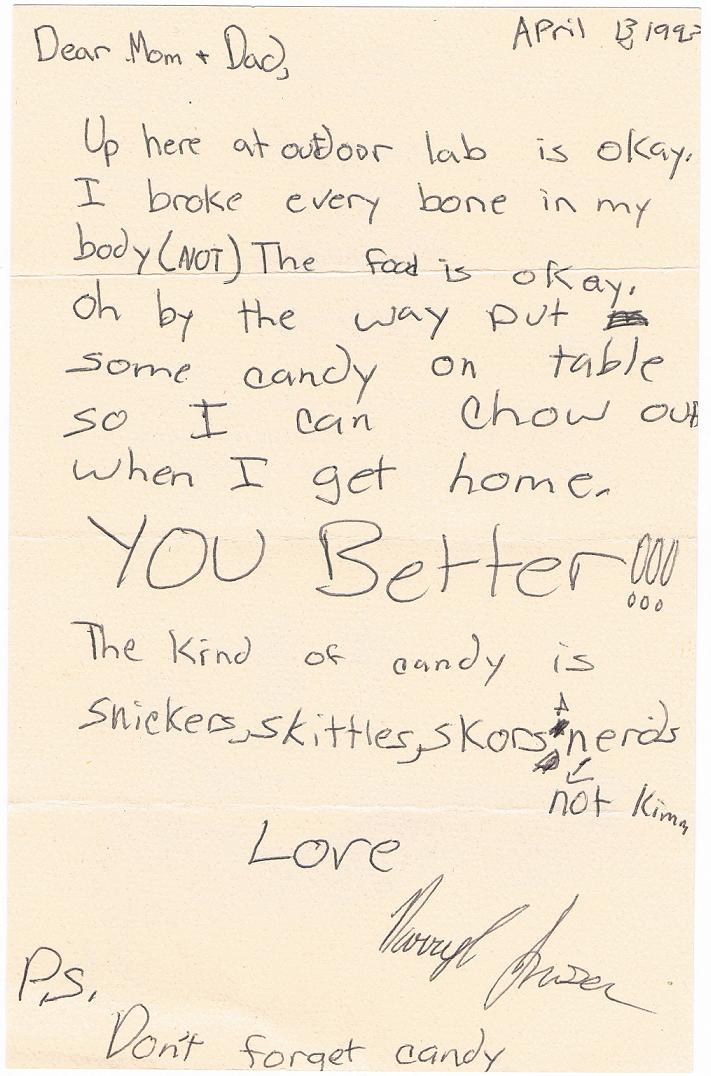 April 13, 1993
Dear Mom + Dad,
Up here at outdoor lab is okay.
I broke every bone in my
body (NOT) The food is okay.
oh by the way put
some candy on table
so I can chow out
when I get home.
YOU Better!!!
The kind of candy is
snickers, skittles, skors, + nerds
not Kimm
Love
Darryl
P.S.
Don't forget candy